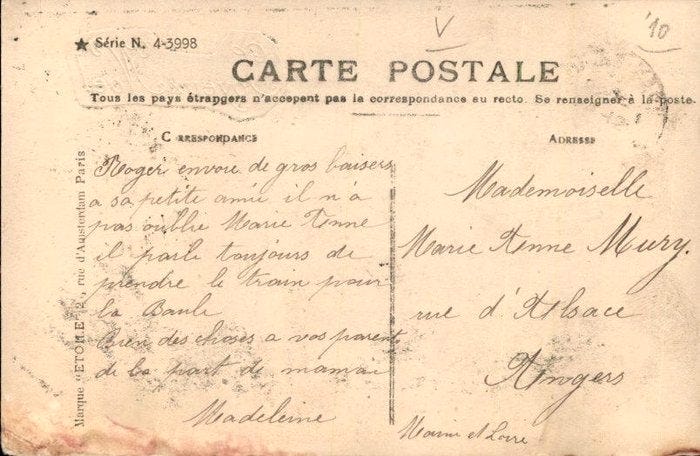 ★ Série N. 4-3998
V
'10
CARTE POSTALE
Tous les pays étrangers n'acceptent pas la correspondance au recto. Se renseigner à la poste.
CORRESPONDANCE
ADRESSE
Marque "ETOILE" rue d'Amsterdam Paris
Roger envoie de gros baisers
a sa petite amie il n'a
pas oublié Marie Anne
il parle toujours de
prendre le train pour
la Baule
Bien des choses a vos parents
de la part de maman
Madeleine
Mademoiselle
Marie Anne Mury.
rue d'Alsace
Angers
Maine et Loire